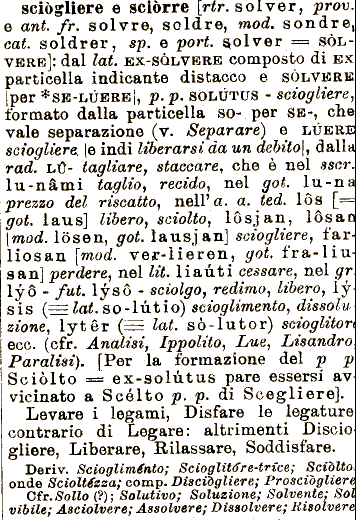 sciògliere e sciòrre [rtr. solver, prov.
e ant. fr. solvre, soldre, mod. sondre,
cat. soldrer, sp. e port. solver = SÒL-
VERE]: dal lat. EX-SÒLVERE composto di EX
particella indicante distacco e SÒLVERE
[per *SE-LÚERE], p. p. SOLÚTUS - sciogliere,
formato dalla particella so- per SE-, che
vale separazione (v. Separare) e LÚERE
sciogliere [e indi liberarsi da un debito], dalla
rad. LÛ- tagliare, staccare, che è nel sscr.
lu-nâmi taglio, recido, nel got. lu-na
prezzo del riscatto, nell'a. a. ted. lôs [=
got. laus] libero, sciolto, lôsjan, lôsan
[mod. lösen, got. lausjan] sciogliere, far-
liosan [mod. ver-lieren, got. fra-liu-
san] perdere, nel lit. liaúti cessare, nel gr.
lýô - fut. lýsô - sciolgo, redimo, libero, lý-
sis (= lat. so-lútio) scioglimento, dissolu-
zione, lytêr (= lat. sò-lutor) scioglitore
ecc. (cfr. Analisi, Ippolito, Lue, Lisandro,
Paralisi). [Per la formazione del p p
Sciòlto = ex-solútus pare essersi av-
vicinato a Scélto p. p. di Scegliere].
Levare i legami, Disfare le legature
contrario di Legare: altrimenti Discio-
gliere, Liberare, Rilassare, Soddisfare.
Deriv. Sciogliménto; Scioglitóre-tríce; Sciòlto
onde Scioltézza; comp. Disciògliere; Prosciògliere
Cfr. Sollo (?); Solutivo; Soluzione; Solvente; Sol
vibile; Asciolvere; Assolvere; Dissolvere; Risolvere